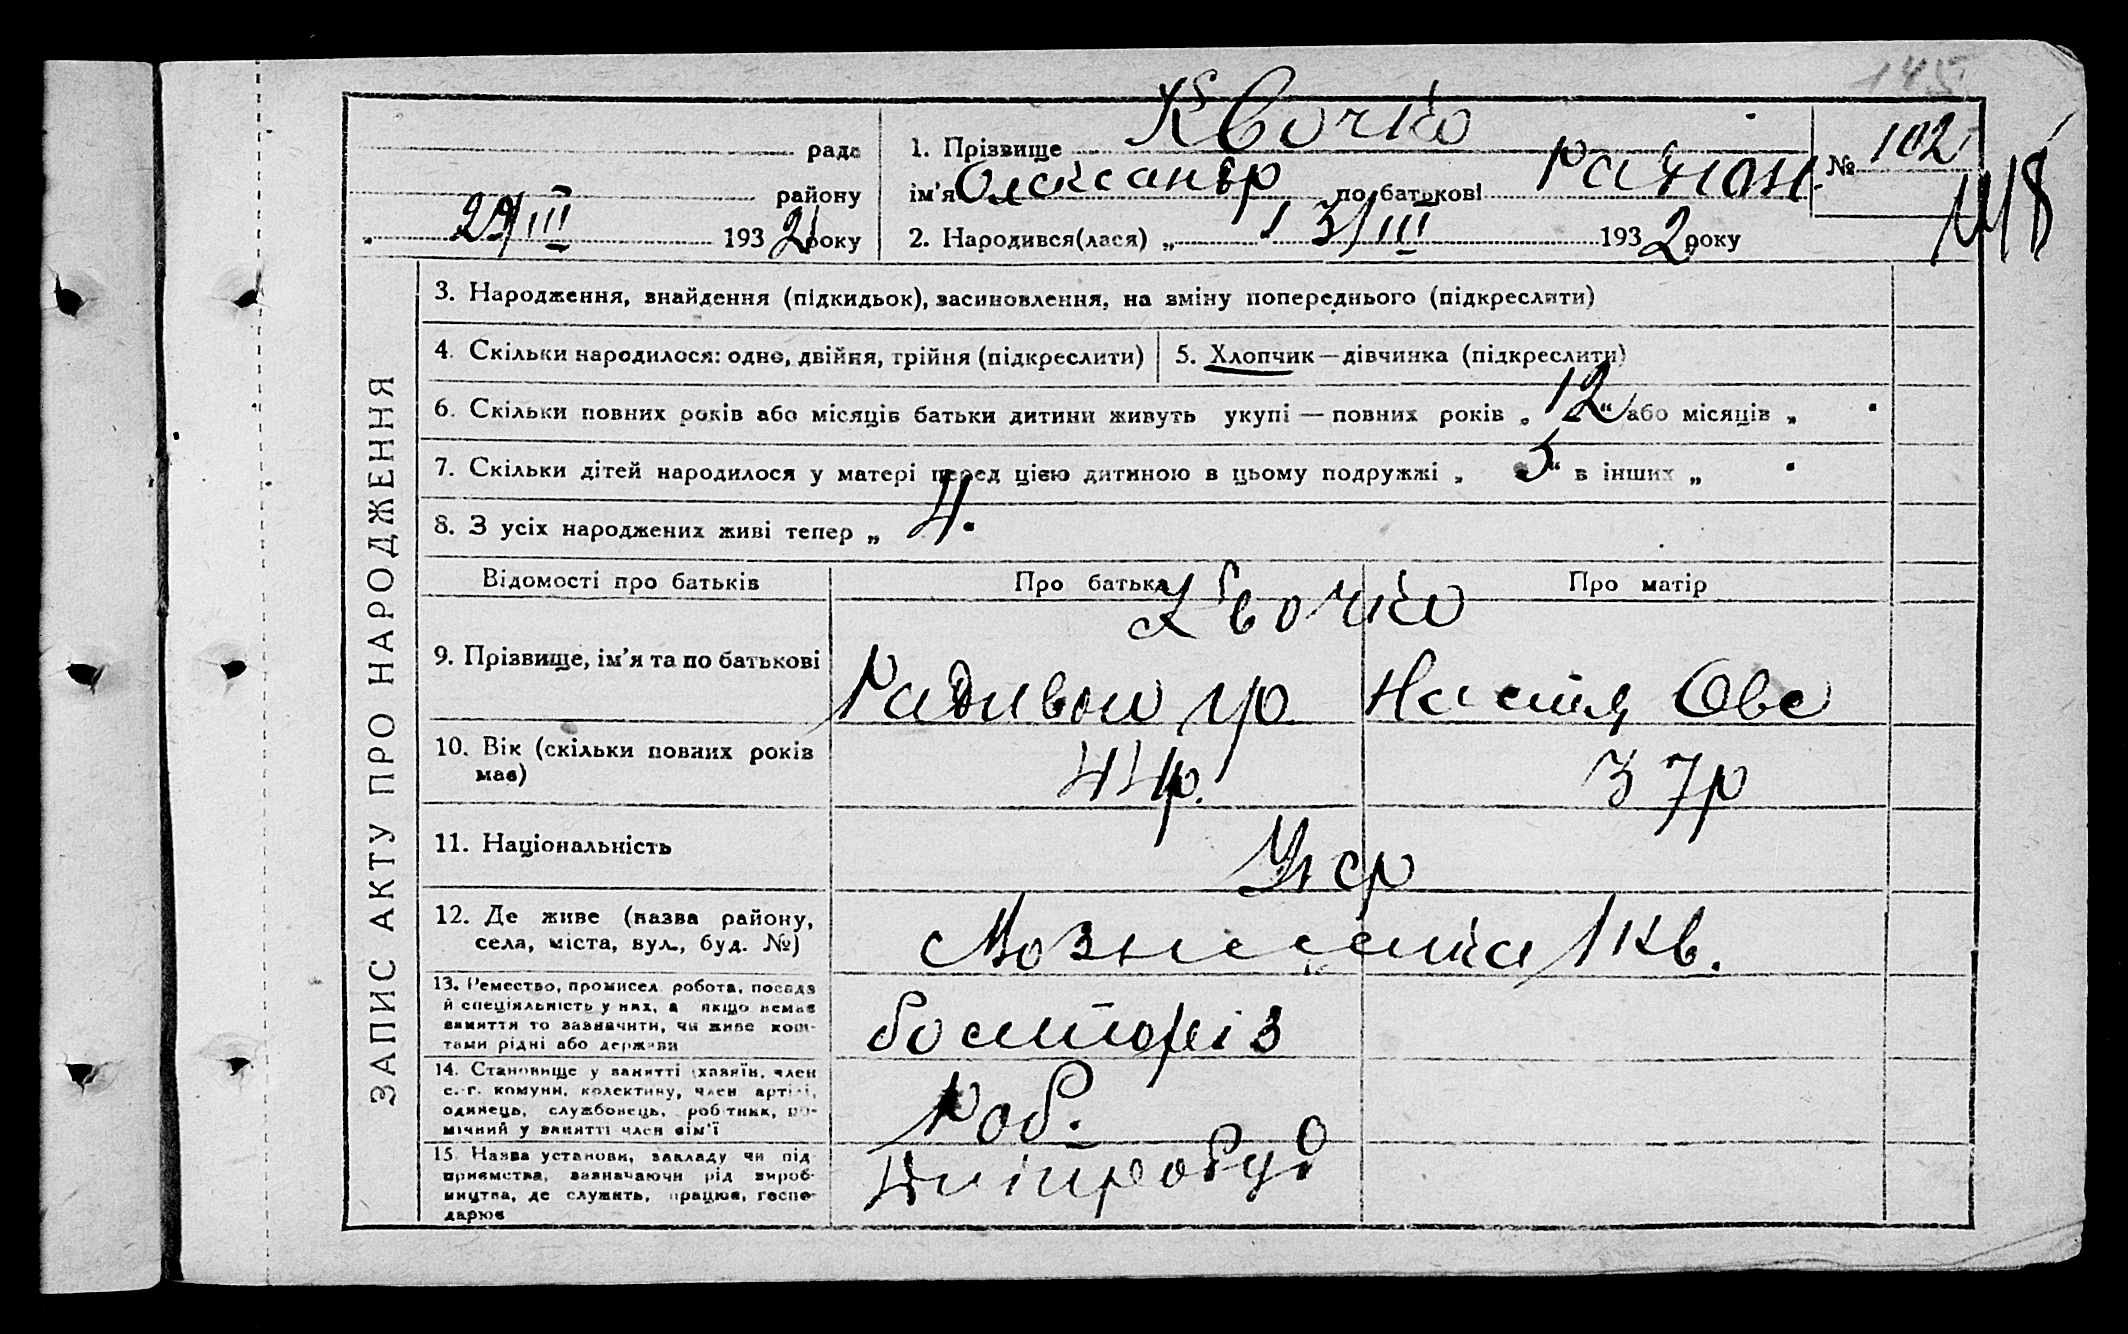 145
Квочко
рада
1. Прізвище
№ 102
148
району
ім'я Олександр по батькові
29/III 1932 року
2. Народився(лася) „ 13/III 1932 року
ЗАПИС АКТУ ПРО НАРОДЖЕННЯ
3. Народження, знайдення (підкидьок), засиновлення, на зміну попереднього (підкреслити)
4. Скільки народилося: одно, двійня, трійня (підкреслити)
5. Хлопчик—дівчинка (підкреслити)
6. Скільки повних років або місяців батьки дитини живуть укупі — повних років „ 12 “ або місяців „
7. Скільки дітей народилося у матері перед цією дитиною в цьому подружжі „ 5 “ в інших „
8. З усіх народжених живі тепер „ 4.
Відомості про батьків
Про батька
Про матір
Квочко
9. Прізвище, ім'я та по батькові
Радивон Гр
Настя Овс
10. Вік (скільки повних років має)
44р.
37р
11. Національність
Укр
12. Де живе (назва району,
села, міста, вул., буд. №)
Вознесенка 1 кв.
13. Ремество, промисел робота, посада
й спеціяльність у них, а якщо немає
заняття то зазначити, чи живе кош-
тами рідні або держави
14. Становище у занятті (хазяїн, член
с.-г. комуни, колективу, член артілі,
одинець, службовець, робітник, по-
мічний у занятті член сім'ї
Роб.
15. Назва установи, закладу чи під-
приємства, зазначаючи рід вироб-
ництва, де служить, працює, госпо-
дарює
Дніпробуд